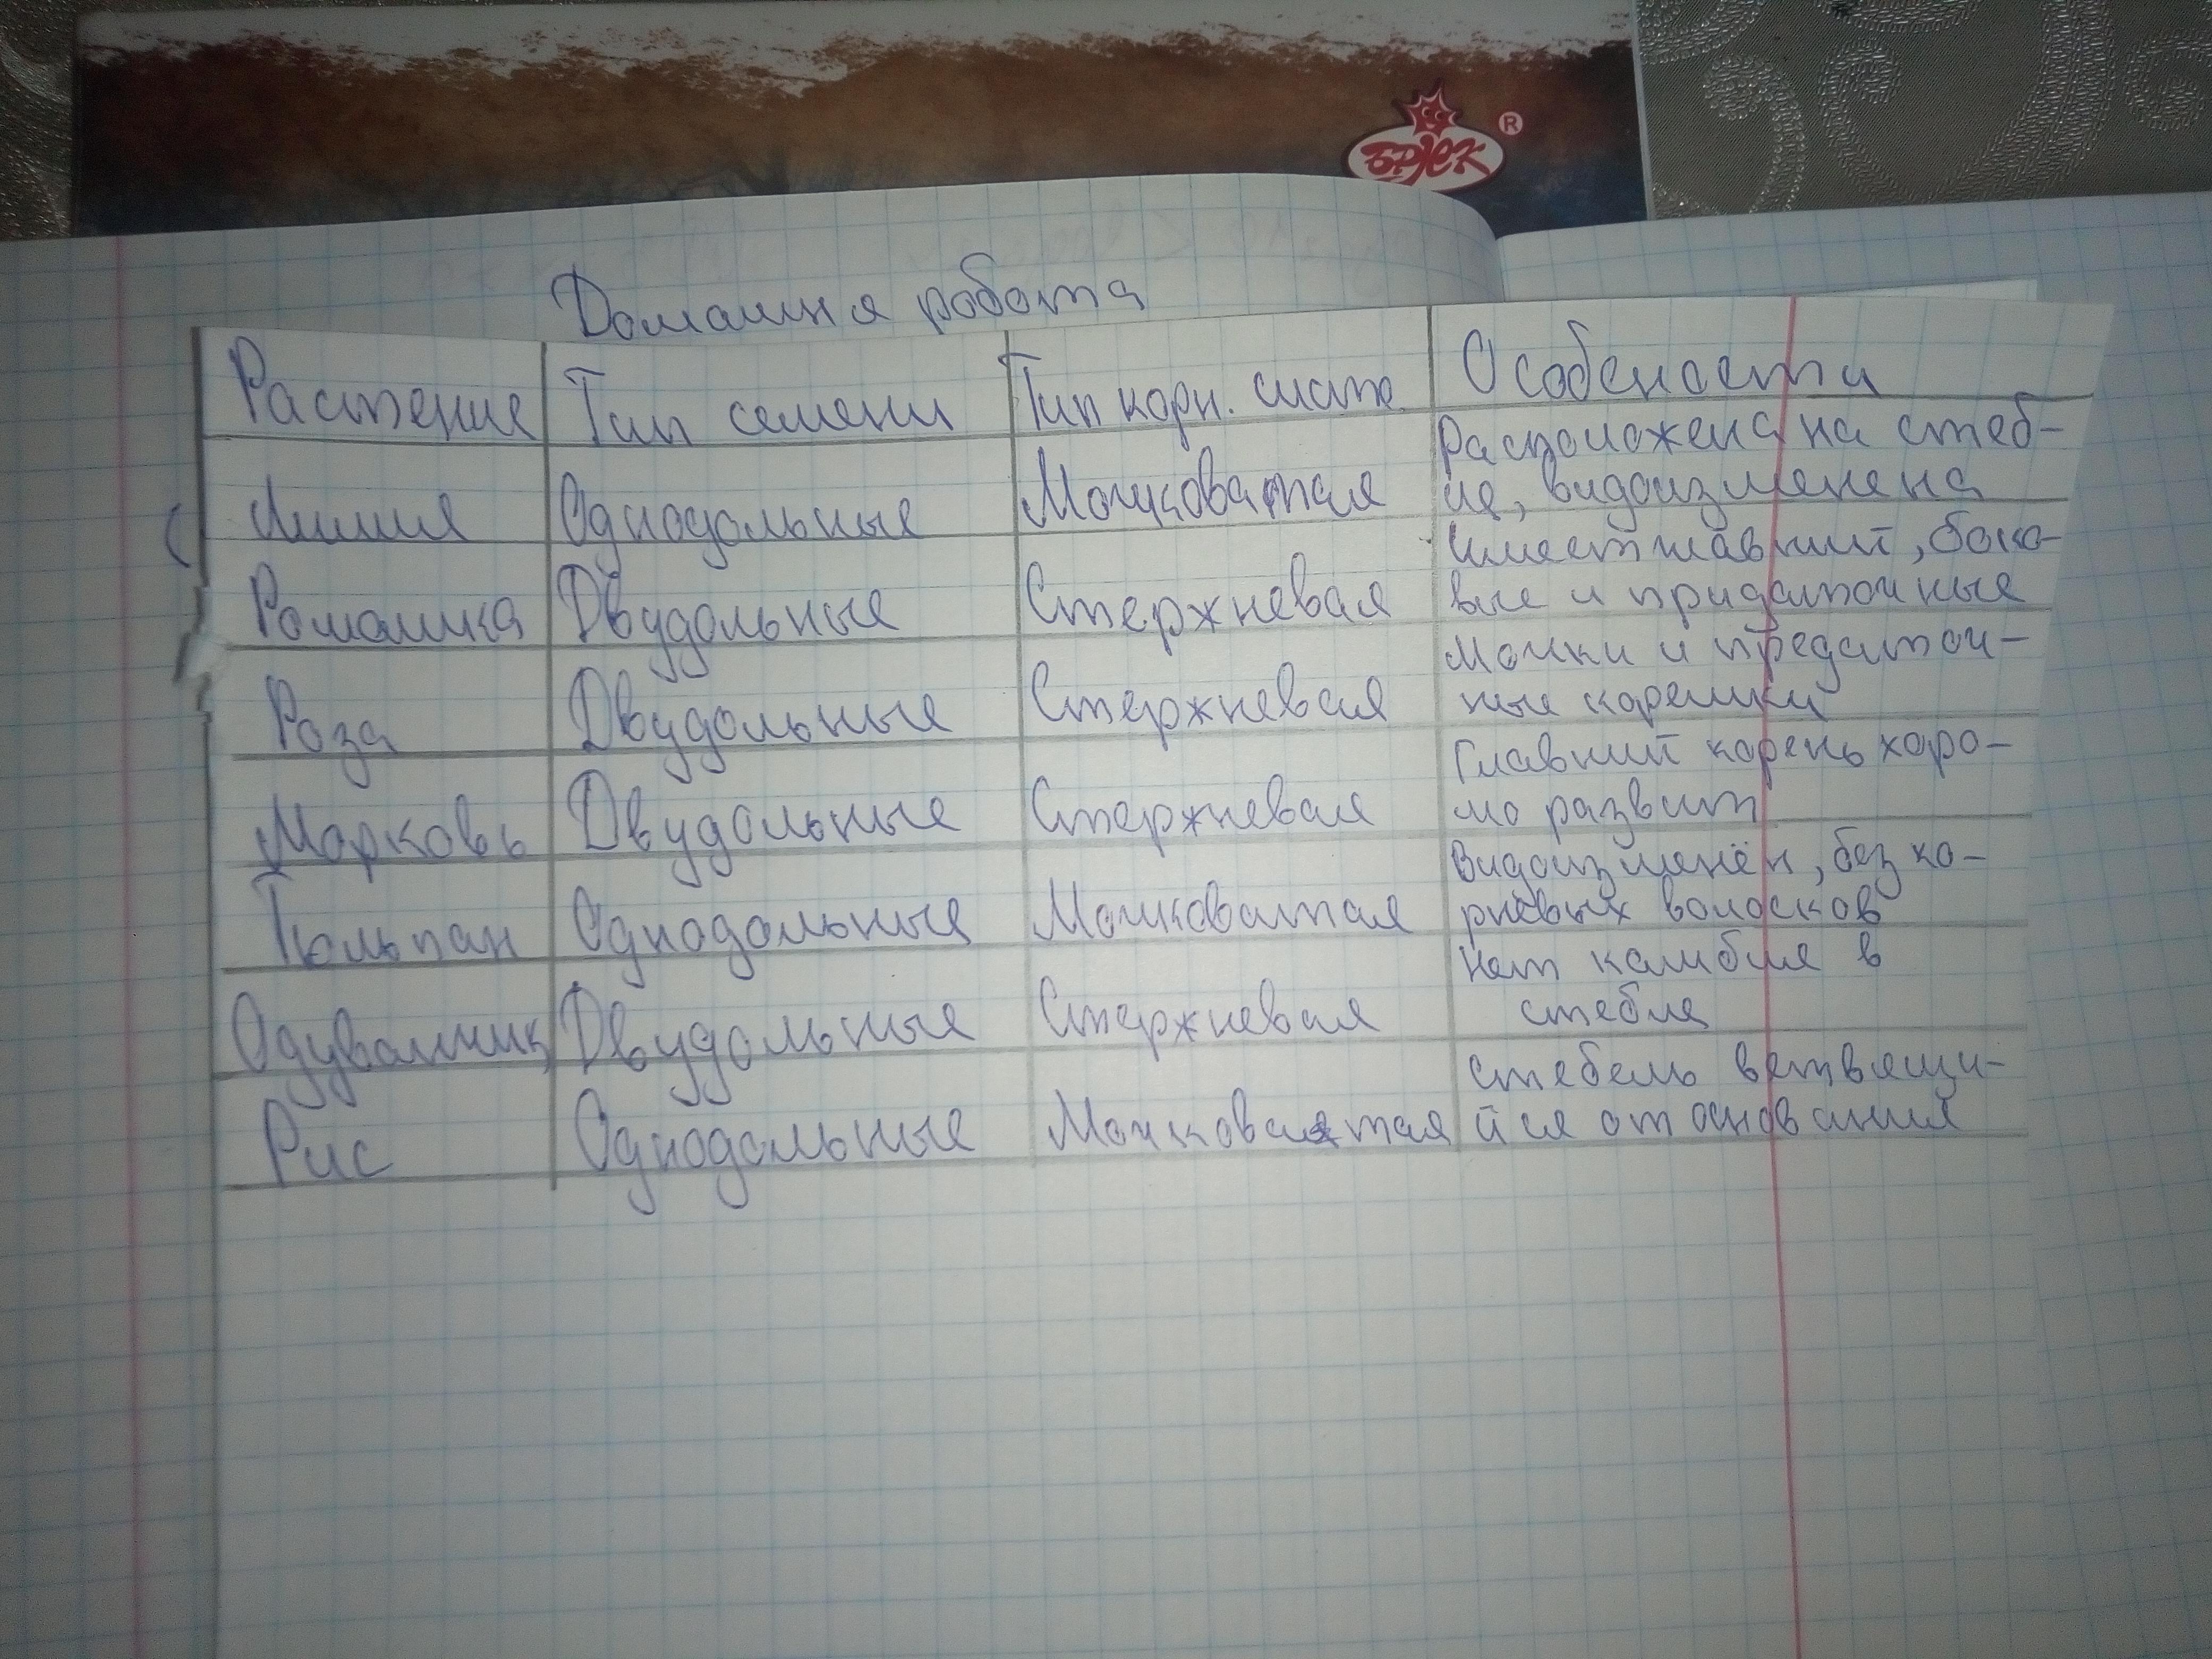 БРІСК ®
Домашня робота
Растение Тип семени Тип корн. систе. Особености
Лилия Однодольные Мочковатая Расположена на стеб-
ле, видоизменена
Ромашка Двудольные Стержневая Имеет главний, боко-
вые и придаточные
Роза Двудольные Стержневая Мочки и предаточ-
ные корешки
Морковь Двудольные Стержневая Главний корень хоро-
шо развит
Тюльпан Однодольные Мочковатая Видоизменён, без ко-
рневых волосков
Одуванчик Двудольные Стержневая Нет камбия в
стебле
Рис Однодольные Мочковатая Стебель ветвящи-
йся от основания